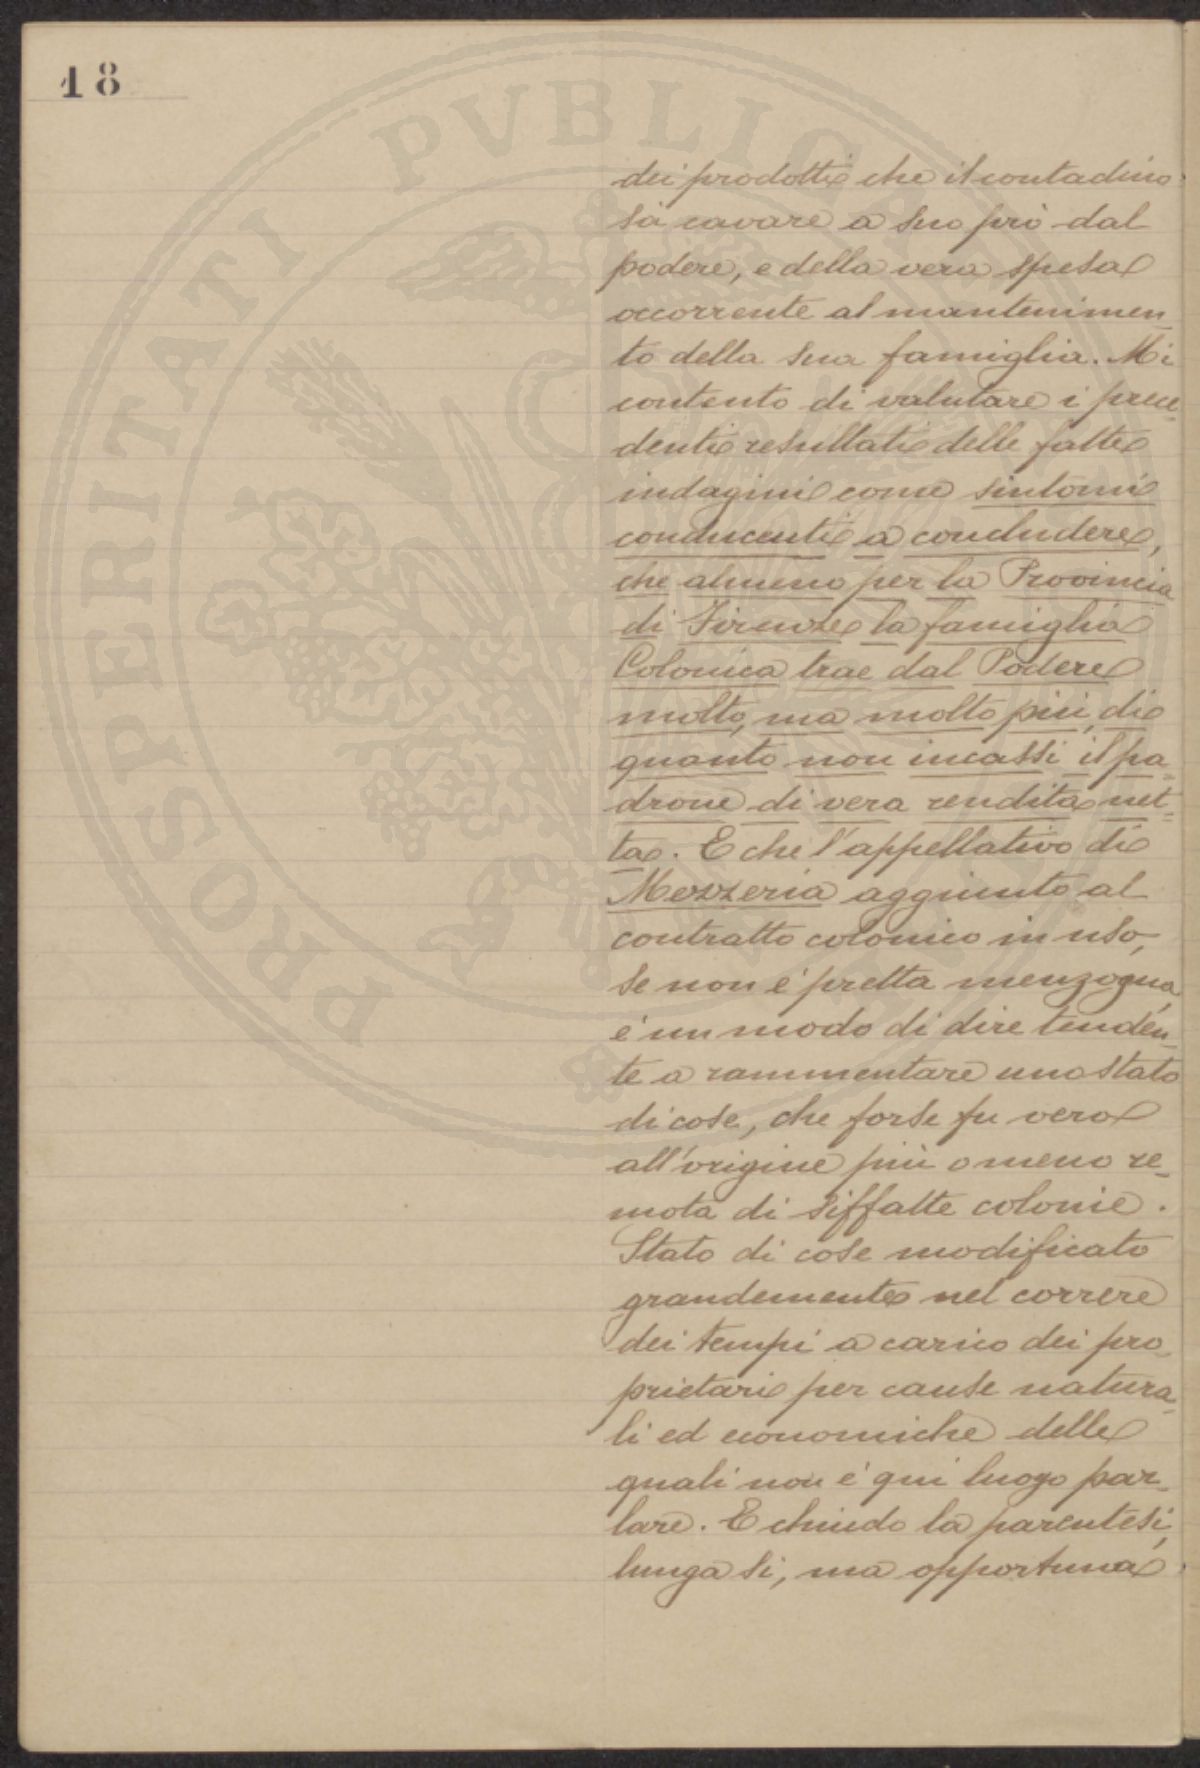 18
PROSPERITATI PVBLICAE
dei prodotti che il contadino
sà cavare a suo prò dal
podere, e della vera spesa
occorrente al mantenimen-
to della sua famiglia. Mi
contento di valutare i prece-
denti resultati delle fatte
indagini come sintomi
conducenti a concludere,
che almeno per la Provincia
di Firenze la famiglia
Colonica trae dal Podere
molto, ma molto più, di
quanto non incassi il pa-
drone di vera rendita net-
ta. E che l'appellativo di
Mezzeria aggiunto al
contratto colonico in uso,
se non è pretta menzogna,
è un modo di dire tenden-
te a rammentare uno stato
di cose, che forse fu vero
all'origine più o meno re-
mota di siffatte colonie.
Stato di cose modificato
grandemente nel correre
dei tempi a carico dei pro-
prietari per cause natura-
li ed economiche delle
quali non è qui luogo par-
lare. E chiudo la parentesi,
lunga si, ma opportuna